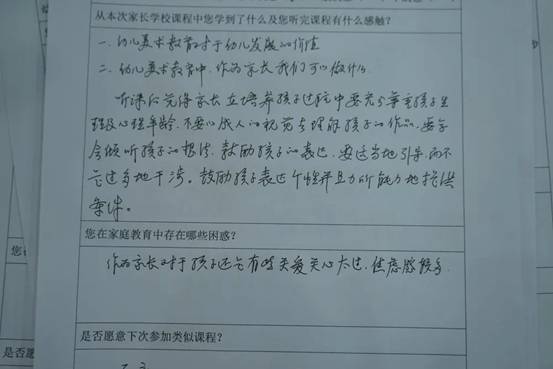 从本次家长学校课程中您学到了什么及您听完课程有什么感触？
一、幼儿美术教育对于幼儿发展的价值
二、幼儿美术教育中，作为家长我们可以做什么
听课后觉得家长在培养孩子过程中要充分尊重孩子生
理及心理年龄，不要以成人的视觉去理解孩子的作品，要学
会倾听孩子的想法，鼓励孩子的表达，要适当地引导，而不
是过多地干涉。鼓励孩子表达个性并且力所能力地提供
条件。
您在家庭教育中存在哪些困惑？
作为家长对于孩子还是有些关爱关心太过，焦虑感较多
是否愿意下次参加类似课程？
您
是否愿